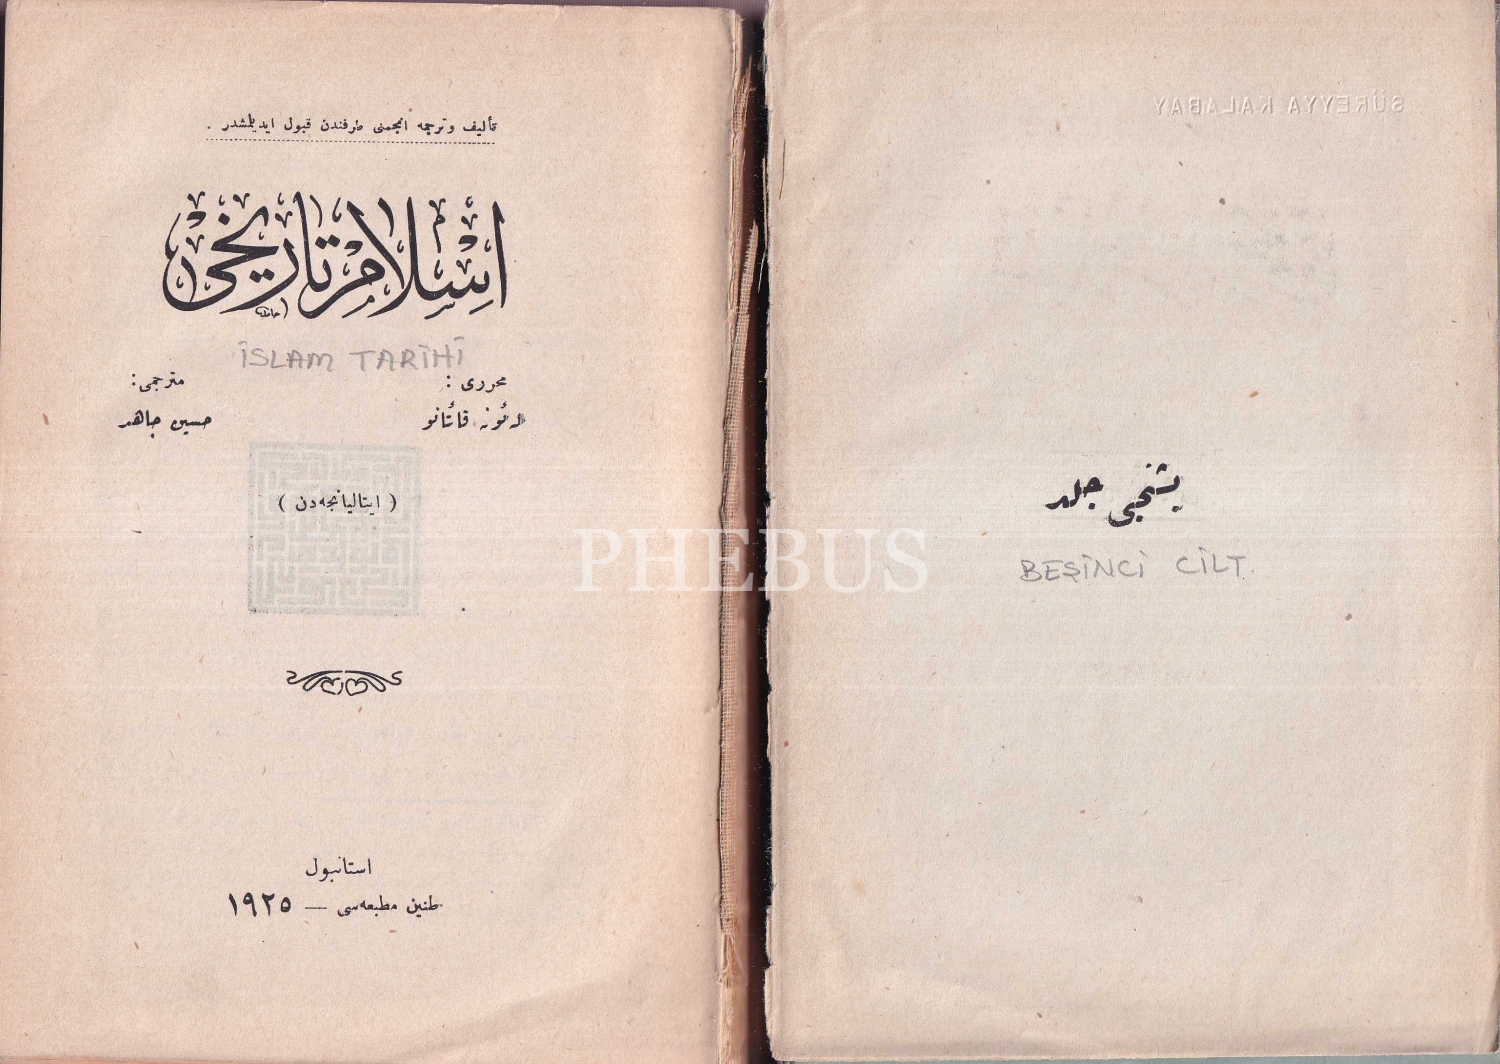 تأليف وترجمه انجمنی طرفندن قبول ايدلمشدر .
اسلام تاريخی
حامد
İSLAM TARİHİ
محرری :
مترجمی :
لهئونه قائتانو
حسين جاهد
( ايتاليانجه‌دن )
استانبول
طنين مطبعه‌سی — ١٩٢٥
SÜREYYA KALABAY
بشنجی جلد
BEŞİNCİ CİLT.
PHEBUS